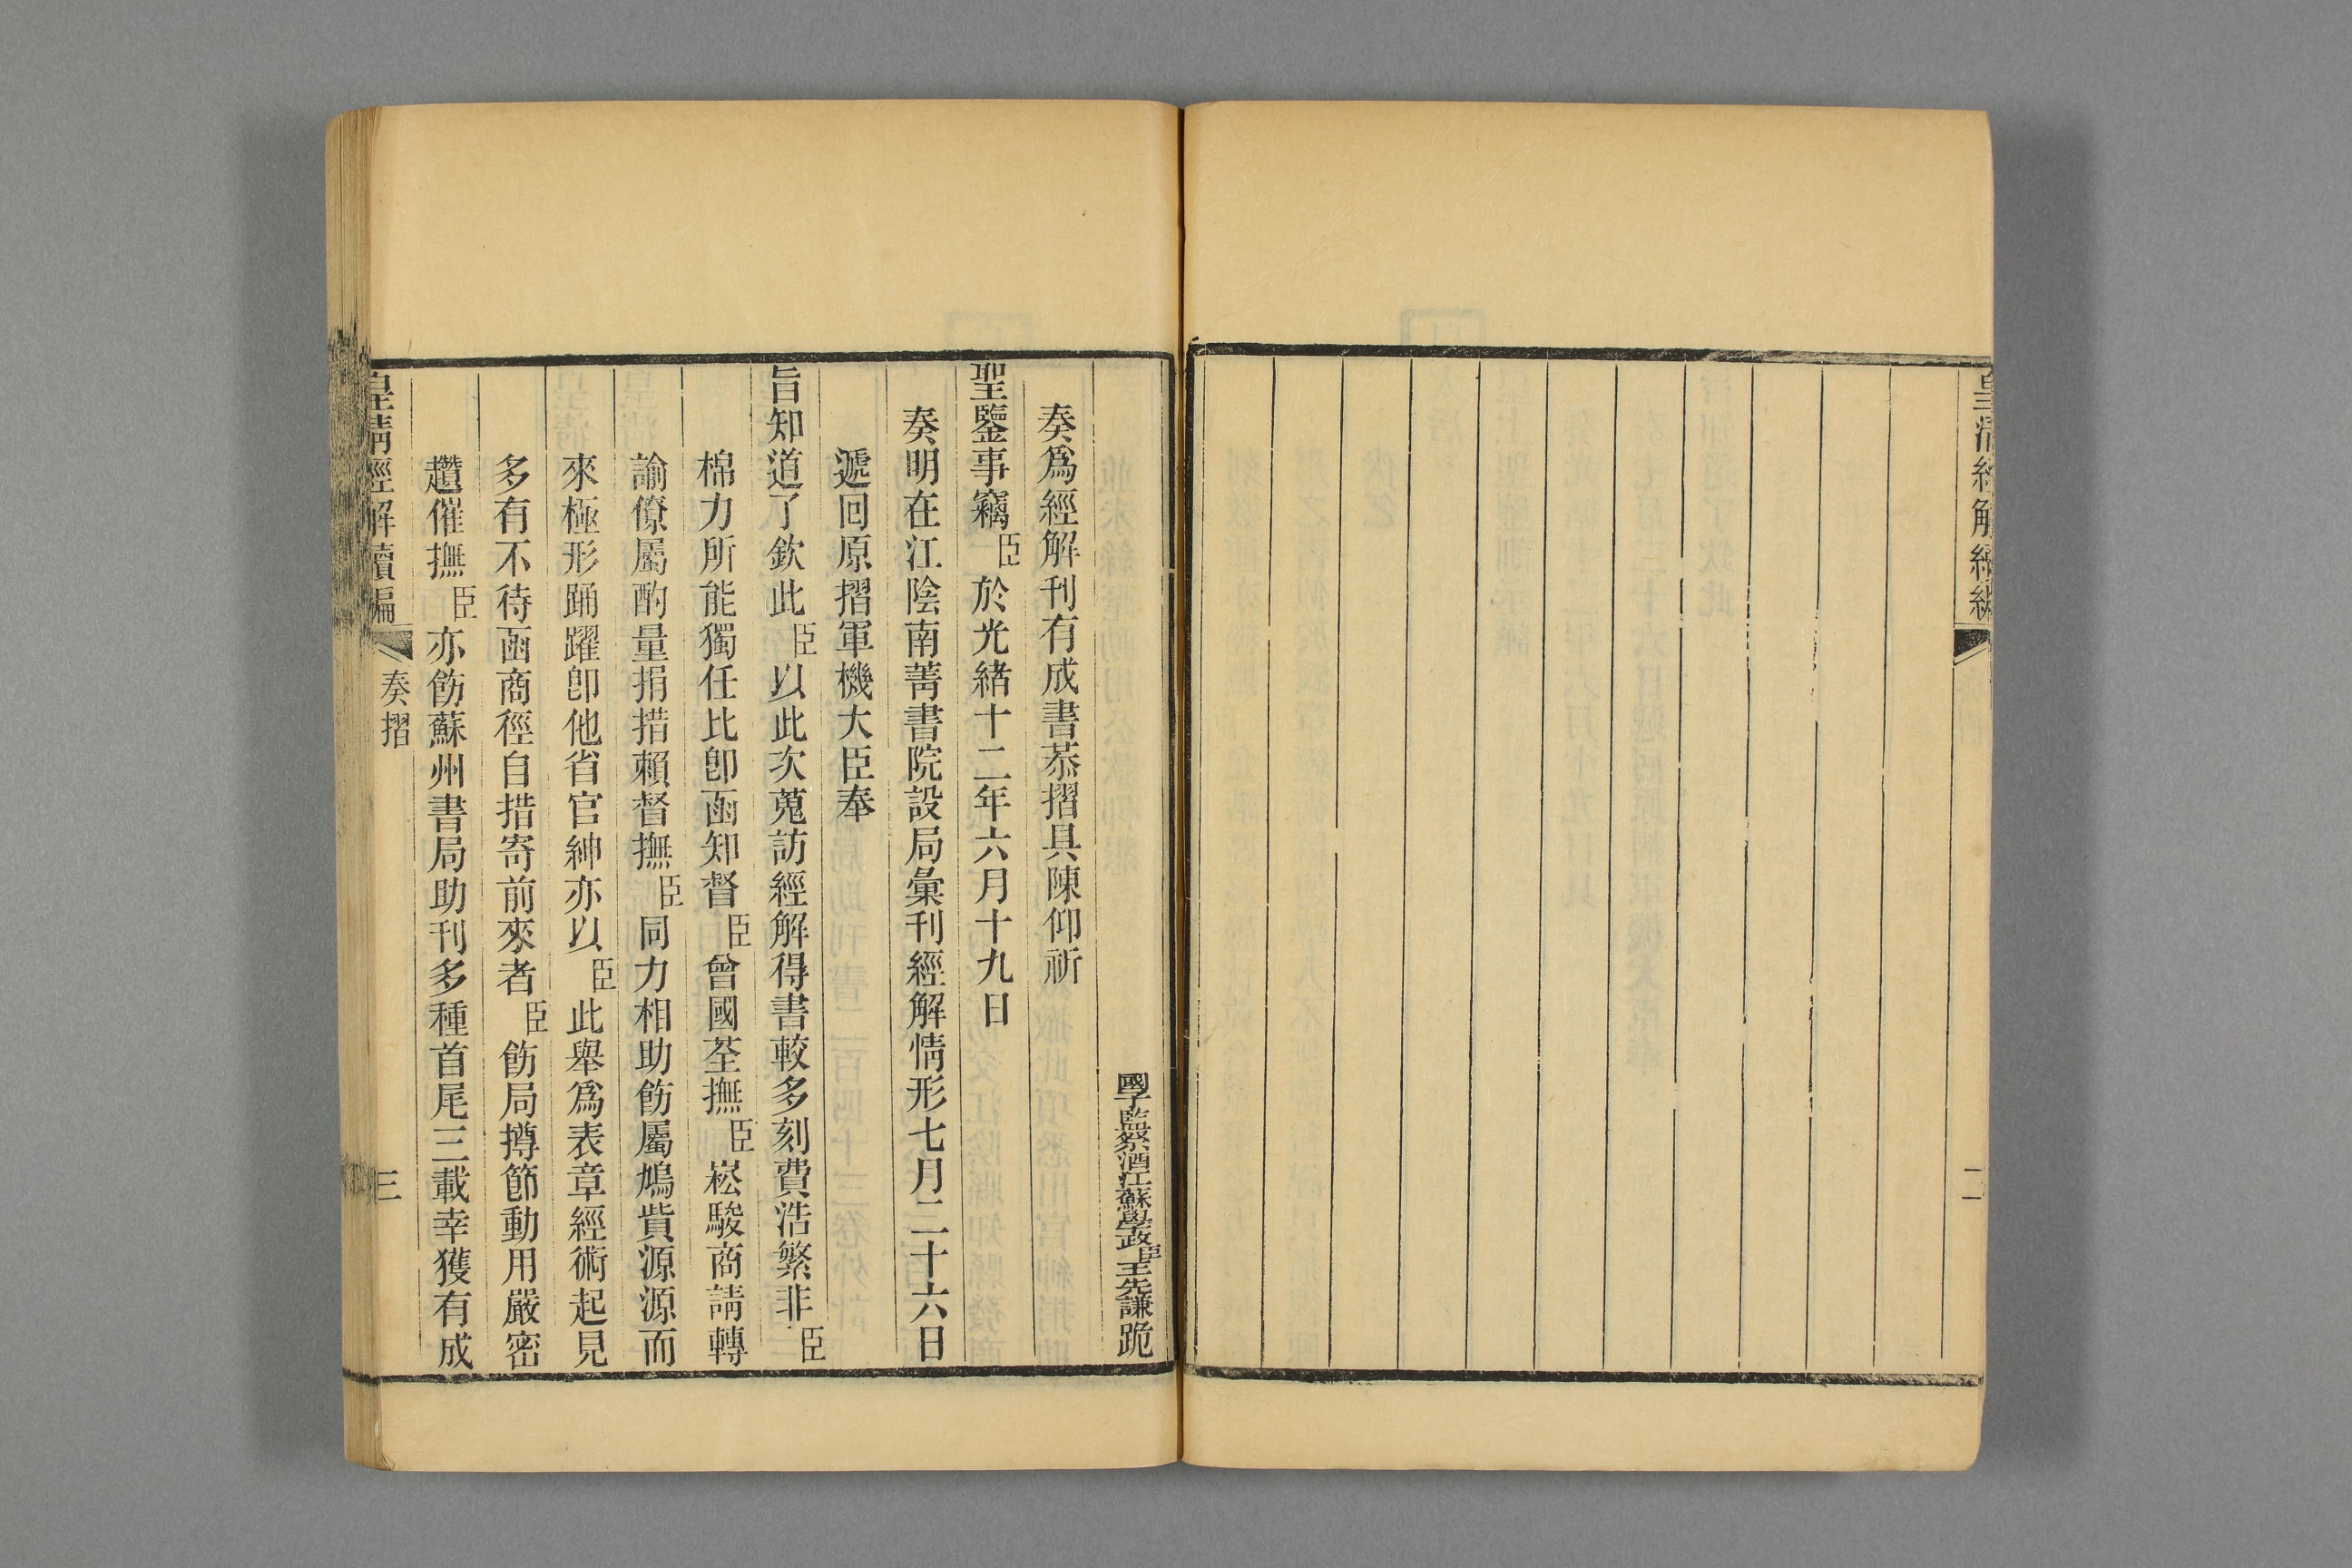 皇清經解續編
二
國子監祭酒江蘇學政臣王先謙跪
奏爲經解刊有成書恭摺具陳仰祈
聖鑒事竊臣於光緒十二年六月十九日
奏明在江陰南菁書院設局彙刊經解情形七月二十六日
遞回原摺軍機大臣奉
旨知道了欽此臣以此次蒐訪經解得書較多刻費浩繁非臣
棉力所能獨任比卽函知督臣曾國荃撫臣崧駿商請轉
諭僚屬酌量捐措賴督撫臣同力相助飭屬鳩貲源源而
來極形踊躍卽他省官紳亦以臣此舉爲表章經術起見
多有不待函商徑自措寄前來者臣飭局撙節動用嚴密
趲催撫臣亦飭蘇州書局助刊多種首尾三載幸獲有成
皇清經解續編
奏摺
三